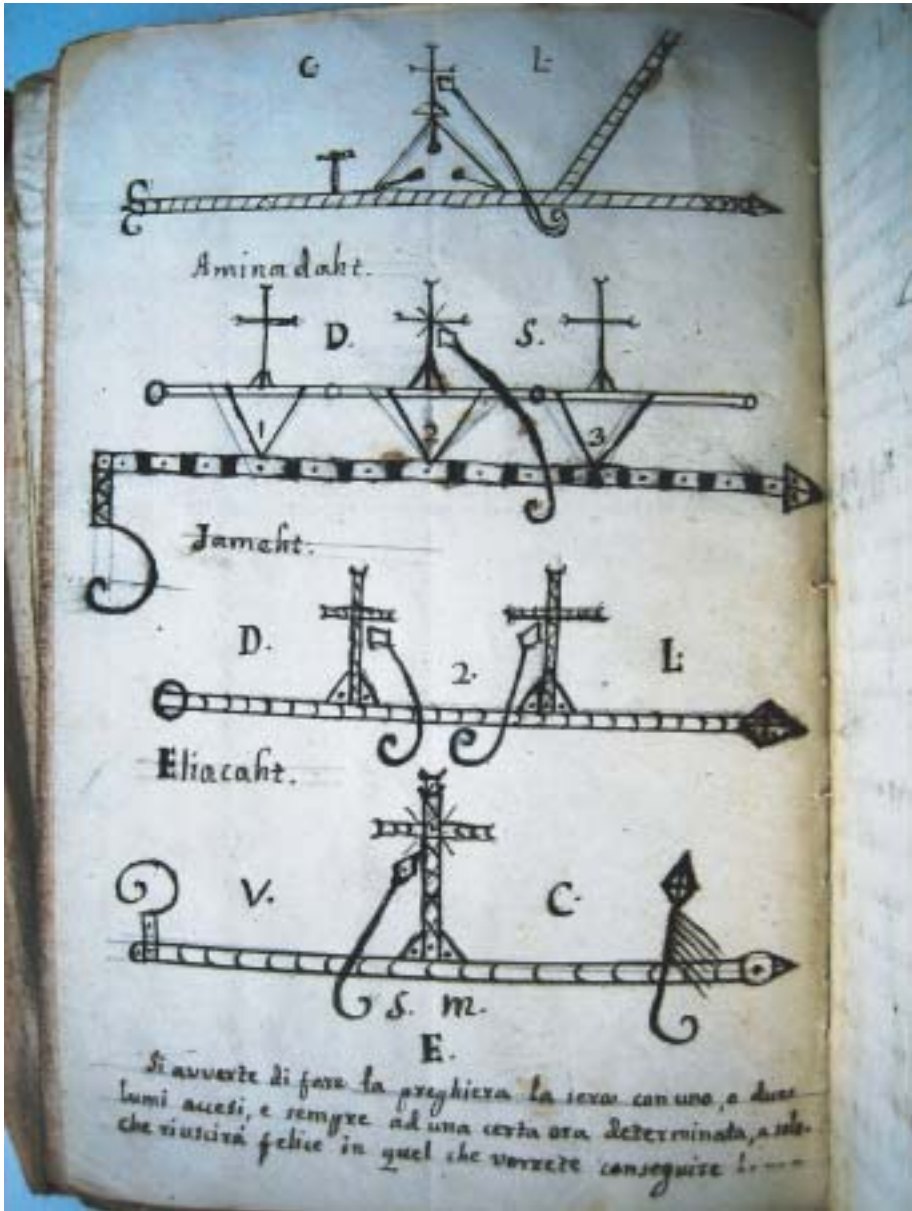 C. L.
Aminadaht.
D. S.
1 2 3
Jameht.
D. 2. L.
Eliacaht.
V. C.
S. m.
E.
Si avverte di fare la preghiera la sera con uno, o due
lumi accesi, e sempre ad una certa ora determinata,
che riuscirá felice in quel che vorrete conseguire !.----